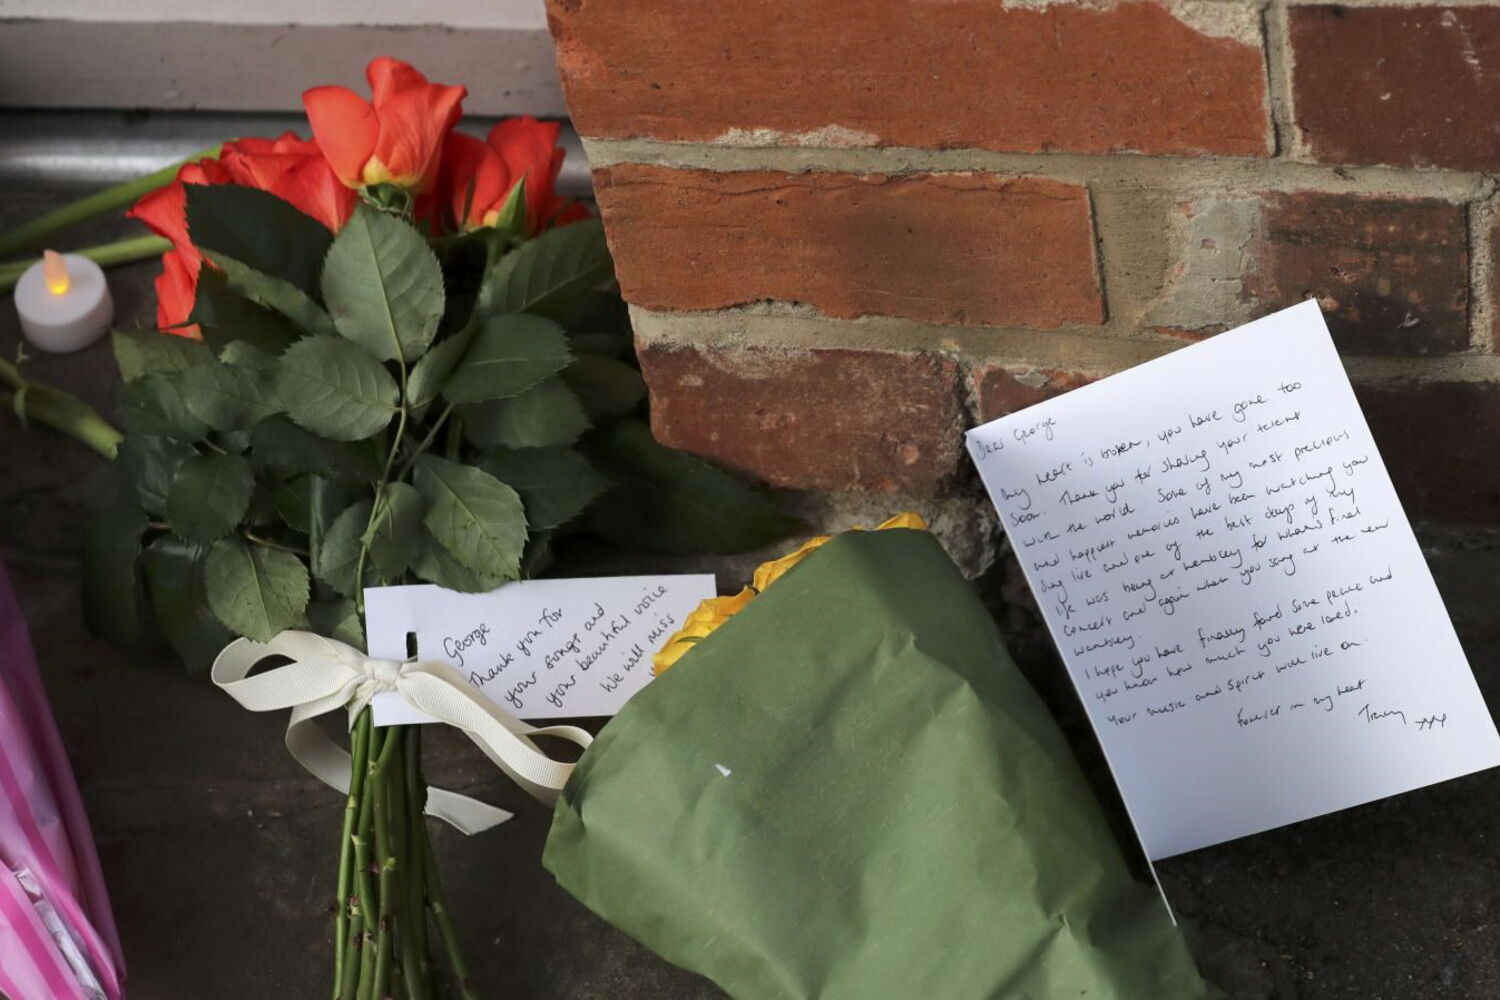 George
Thank you for
your songs and
your beautiful voice
We will miss
Dear George
My heart is broken, you have gone too
soon. Thank you for sharing your talent
with the world. Some of my most precious
and happiest memories have been watching you
sing live and one of the best days of my
life was being at Wembley for Wham's final
concert and again when you sang at the new
Wembley.
I hope you have finally found some peace and
you know how much you were loved.
Your music and spirit will live on.
Forever in my heart
Tracy xxx